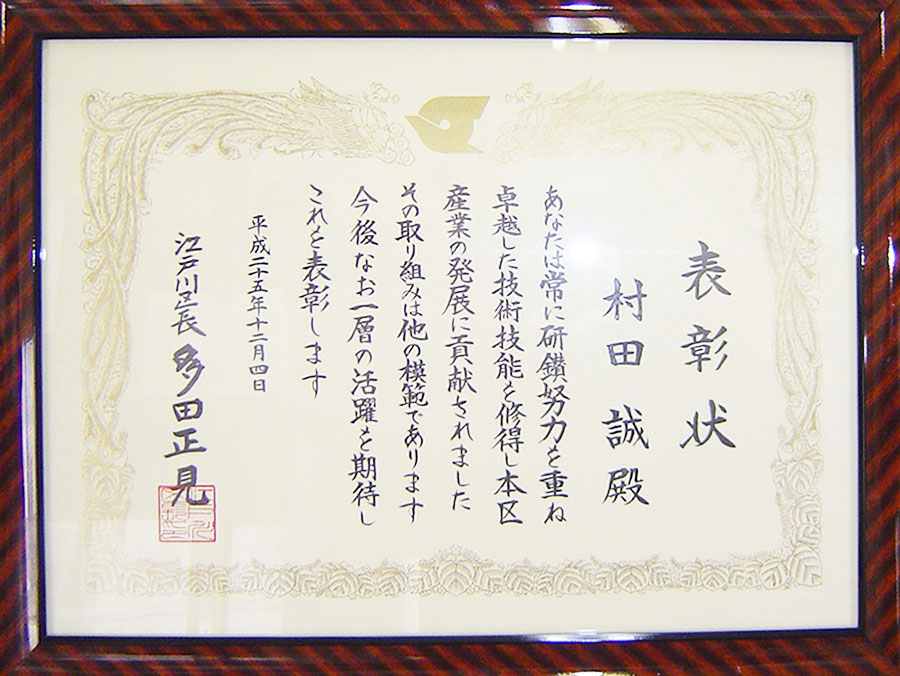 表彰状
村田誠殿
あなたは常に研鑚努力を重ね
卓越した技術技能を修得し本区
産業の発展に貢献されました
その取り組みは他の模範であります
今後なお一層の活躍を期待し
これを表彰します
平成二十五年十二月四日
江戸川区長 多田正見